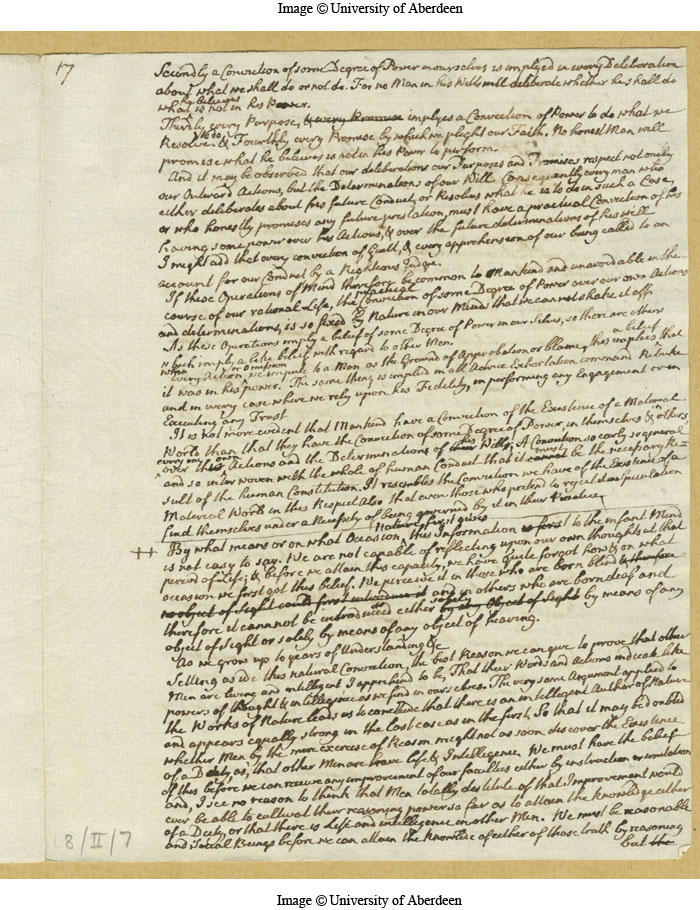 Image © University of Aberdeen
17
Secondly a Conviction of some Degree of Power in ourselves is implyed in every Deliberation
about what we shall do or not do. For no Man in his Wits will deliberate whether he shall do
what he believes is not in his Power.
Thirdly every Purpose, & every Promise implyes a Conviction of Power to do what we
Resolve to do, & Fourthly every Promise by which we plight our Faith. No honest Man will
promise what he believes is not in his Power to perform.
And it may be observed that our deliberations our Purposes and Promises respect not onely
our Outward Actions, but the Determinations of our Will. Consequently every man who
either deliberates about his future Conduct, or Resolves what he is to do in such a Case,
or who honestly promises any future prestation, must have a practical Conviction of his
having some power over his Actions, & over the future determinations of his will
I might add that every conviction of Guilt, & every apprehension of our being called to an
account for our Conduct by a Righteous Judge.
If these Operations of Mind therefore be common to Mankind and unavoidable in the
course of our rational Life, the practical Conviction of some Degree of Power over our own Actions
and determinations, is so fixed by Nature in our Minds that we can not shake it off.
As these Operations imply a belief of some Degree of Power in our Selves, so there are others
which imply a like belief with regard to other Men.
When every Action or Omission we impute to a Man as the Ground of Approbation or blame, this implies a belief that
it was in his power. The same thing is implied in all Advice Exhortation command Rebuke
and in every case where we rely upon his Fedelity, in performing any Engagement or in
Executing any Trust
It is not more evident that Mankind have a Conviction of the Existence of a Material
World than that they have the Conviction of some Degree of Power, in themselves & others,
over Actions and the Determinations of Will; A Conviction so early so general
and so inter woven with the whole of human Conduct that it must be the necessary Re-
sult of the human Constitution. It resembles the Conviction we have of the Existence of a
Material World in this Respect also that even those who pretend to reject it in speculation
find themselves under a Necessity of being governed by it in their Practice
++ By what means or on what Occasion Nature first gives this Information to the infant Mind
is not easy to say. We are not capable of reflecting upon our own thoughts at that
period of Life; & before we attain this capacity, we have quite forgot how & on what
occasion we first got this belief. We perceive it in those who are born blind & therefore
no object of sight could first introduce it and in others who are born deaf and
therefore it can not be introduced either solely by any Object of sight by means of any
object of Sight or solely by means of any object of hearing.
As we grow up to years of Understanding &c
Setting aside this natural Conviction, the best Reason we can give to prove that other
Men are living and intelligent I apprehend to be, That their Words and Actions indicate like
powers of thought & intelligence as we find in ourselves. The very same Argument applied to
the Works of Nature leads us to conclude that there is an intelligent Author of Nature
and appears equally strong in the last case as in the first. So that it may be doubted
whether Men by the mere exercise of Reason might not as soon discover the Existence
of a Deity, as, that other Men have Life & Intelligence. We must have the belief
of this before we can receive any improvement of our faculties either by instruction or imitation
and, I see no reason to think that Men totally destitute of that Improvement would
ever be able to cultivat their reasoning power so far as to attain the knowledge either
of a Deity, or that there is Life and intelligence in other Men. We must be reasonable
and Social Beings before we can attain the knowledge of either of those truth by reasoning
but the
8/II/7
Image © University of Aberdeen